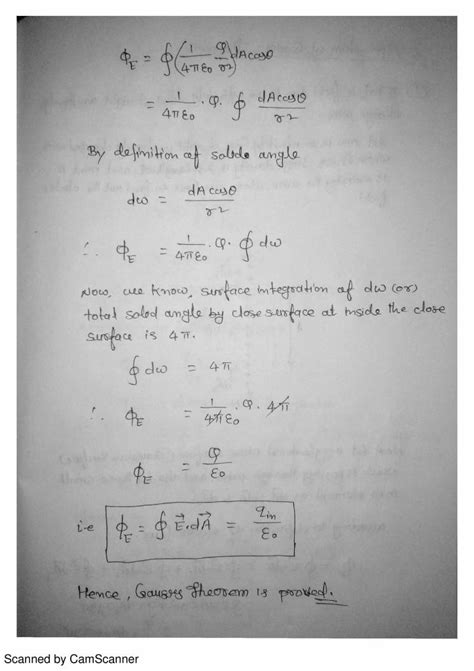 ϕ_E = ∮(1/4πε0 φ/r2) dAcosθ
= 1/4πε0 . φ. ∮ dAcosθ/r2
By definition of solide angle
dω = dAcosθ/r2
∴ ϕ_E = 1/4πε0 . φ. ∮ dω
Now, we know, surface integration of dω (or)
total solod angle by close surface at inside the close
surface is 4π.
∮ dω = 4π
∴ ϕ_E = 1/4πε0 . φ. 4π
ϕ_E = φ/ε0
i-e ϕ_E = ∮ E⃗.dA⃗ = q_in/ε0
Hence, Gausss Theorem is proved.
Scanned by CamScanner